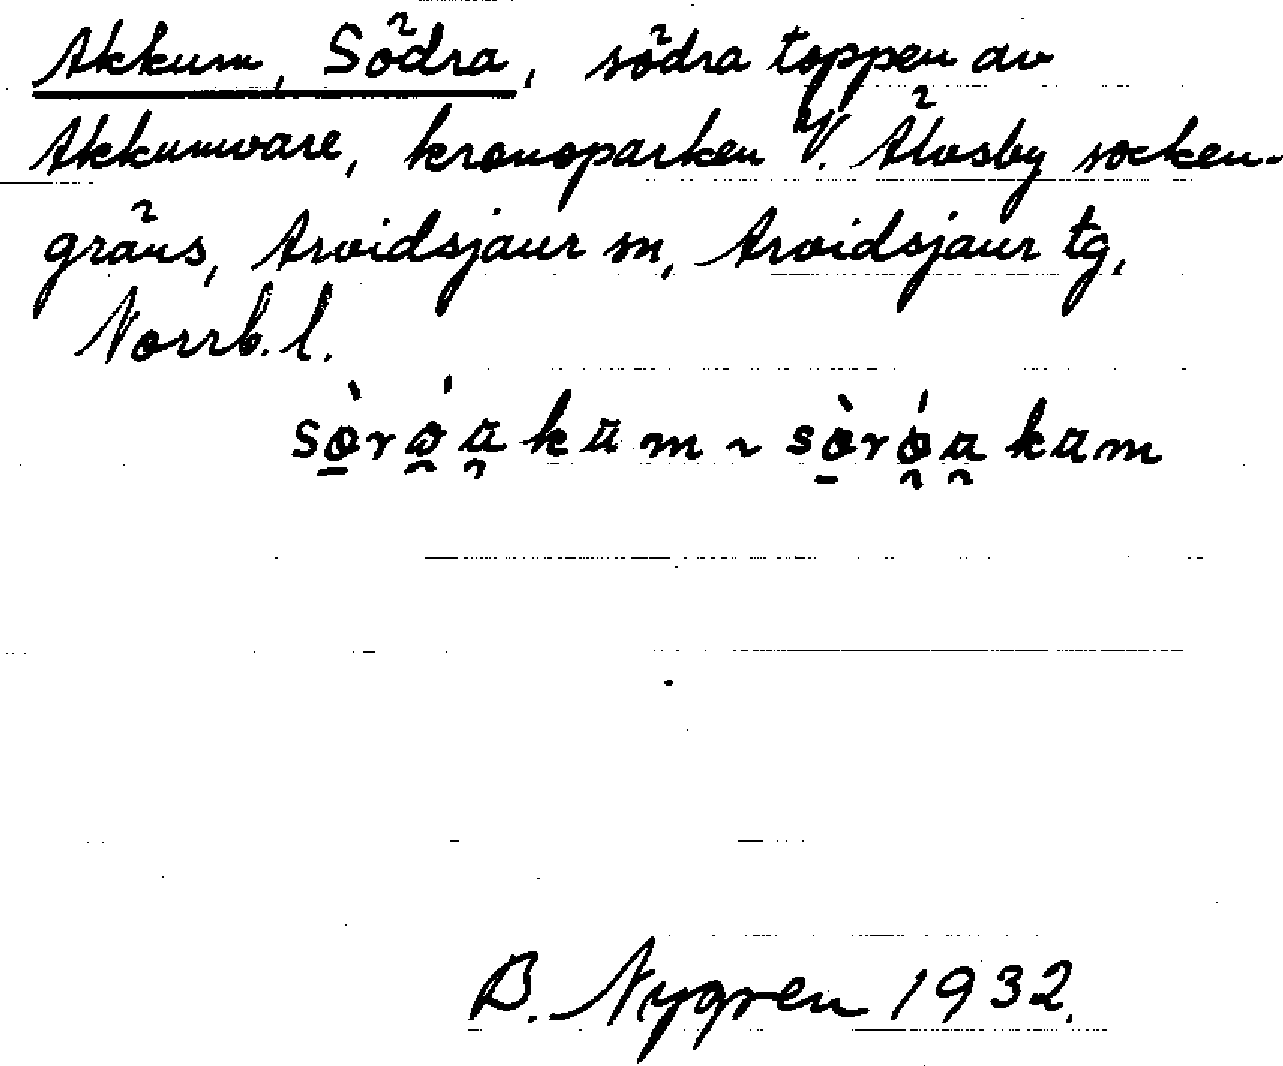 Akkum, Södra, södra toppen av
Akkumvare, kronoparken V. Älvsby socken-
gräns, Arvidsjaur sn, Arvidsjaur tg,
Norrb. l.
B. Nygren 1932.